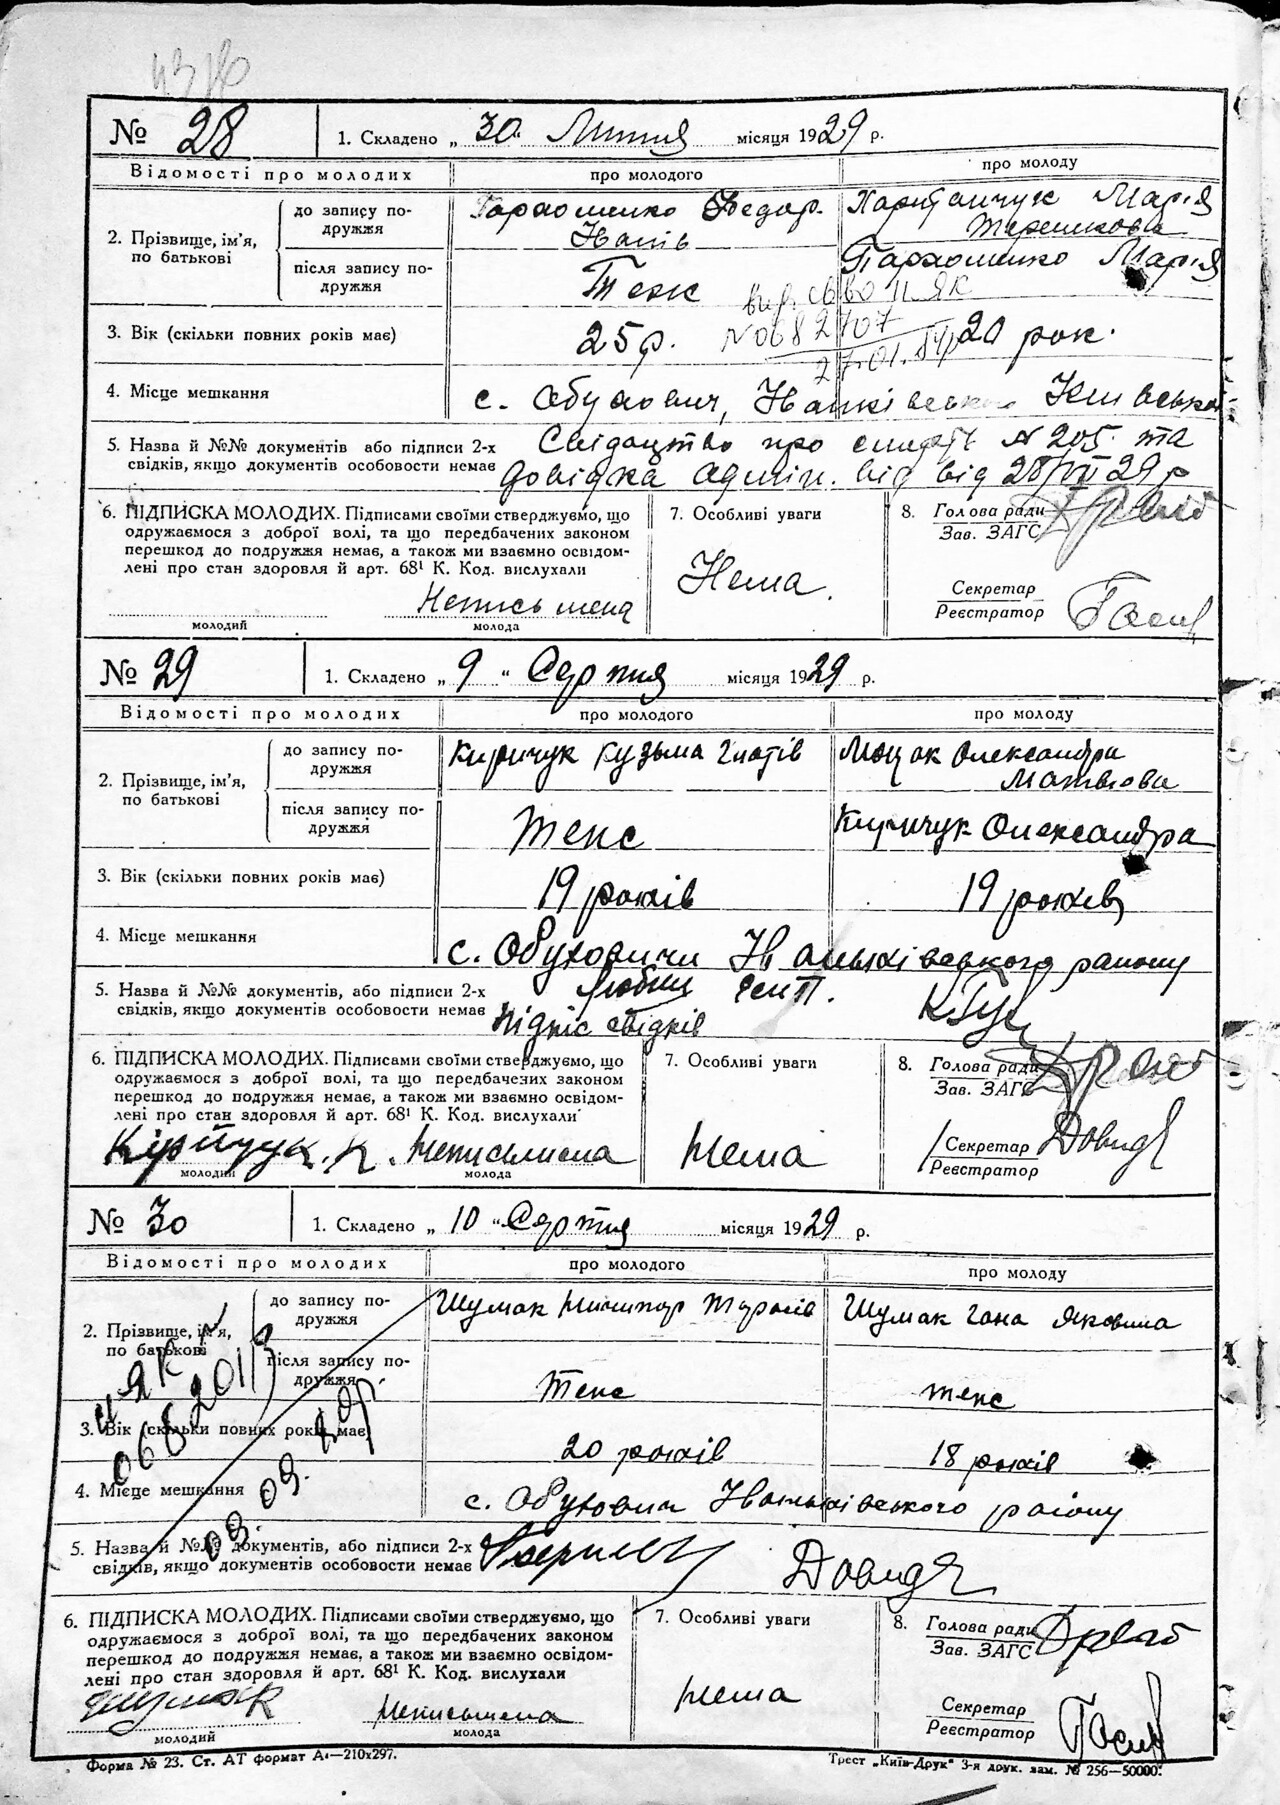 № 28
1. Складено „ 30 “ Липня місяця 1929 р.
Відомості про молодих про молодого про молоду
2. Прізвище, ім'я, по батькові
до запису подружжя
Пархоменко Федор Іванів
Харитончук Марія Терешкова
після запису подружжя
Теж
Пархоменко Марія
вид. св-во II ЯК
N 0682707
27.01.84р
3. Вік (скільки повних років має)
25 р.
20 рок.
4. Місце мешкання
с. Обуховичі, Іванківськ Київської
5. Назва й №№ документів або підписи 2-х
свідків, якщо документів особовости немає
Свідоцтво про смерть № 205 та
довідка адмін. від від 28/VII 29 р
6. ПІДПИСКА МОЛОДИХ. Підписами своїми стверджуємо, що
одружаємося з доброї волі, та що передбачених законом
перешкод до подружжя немає, а також ми взаємно освідом-
лені про стан здоров'я й арт. 68¹ К. Код. вислухали
Неписьмена
молодий молода
7. Особливі уваги
Нема.
8. Голова ради
Зав. ЗАГС
Секретар
Реєстратор
№ 29
1. Складено „ 9 “ Серпня місяця 1929 р.
Відомості про молодих про молодого про молоду
2. Прізвище, ім'я,
по батькові
до запису по-
дружжя
Киричук Кузьма Гнатів
Олександра
Матвієва
після запису по-
дружжя
Теж
Киричук Олександра
3. Вік (скільки повних років має)
19 років
19 років
4. Місце мешкання
с. Обуховичи Іваньківського району
5. Назва й №№ документів, або підписи 2-х
свідків, якщо документів особовости немає
Підпис свідків
6. ПІДПИСКА МОЛОДИХ. Підписами своїми стверджуємо, що
одружаємося з доброї волі, та що передбачених законом
перешкод до подружжя немає, а також ми взаємно освідом-
лені про стан здоров'я й арт. 68¹ К. Код. вислухали
Кірийчук. К. Неписьмена
молодий молода
7. Особливі уваги
Нема
8. Голова ради
Зав. ЗАГС
Секретар
Реєстратор
№ 30
1. Складено „ 10 “ Серпня місяця 1929 р.
Відомості про молодих про молодого про молоду
2. Прізвище, ім'я,
по батькові
до запису по-
дружжя
Шумак Ничипор
Шумак Гана Яковина
після запису по-
дружжя
Теж
теж
II ЯК
0682011
3. Вік (скільки повних років має)
20 років
18 років
4. Місце мешкання
с. Обуховичи Іваньківського району
5. Назва й №№ документів, або підписи 2-х
свідків, якщо документів особовости немає
6. ПІДПИСКА МОЛОДИХ. Підписами своїми стверджуємо, що
одружаємося з доброї волі, та що передбачених законом
перешкод до подружжя немає, а також ми взаємно освідом-
лені про стан здоров'я й арт. 68¹ К. Код. вислухали
Шумак неписьмена
молодий молода
7. Особливі уваги
Нема
8. Голова ради
Зав. ЗАГС
Секретар
Реєстратор
Форма № 23. Ст. АТ формат А₄—210x297. Трест „Київ-Друк“ 3-я друк. зам. № 256—50000.